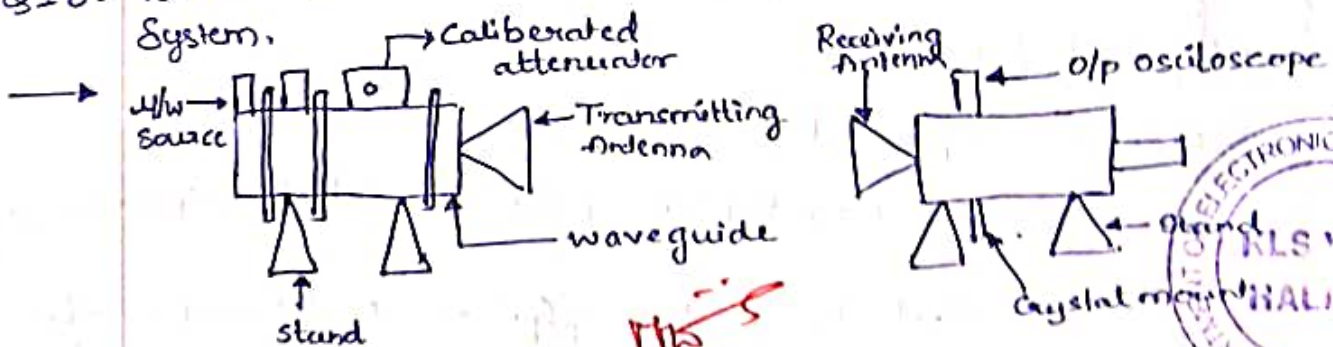 System.
Caliberated
attenuator
M/w
Source
Transmitting
Antenna
waveguide
stand
Receiving
Antenna
o/p osciloscope
Stand
Crystal mount
ELECTRONIC
KLS V
HAL